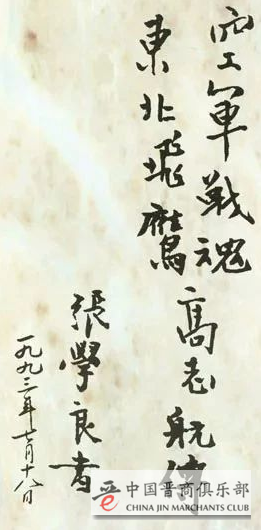 空軍戰魂
東北飛鷹
高志航傳
張學良書
一九九三年七月十八日
中国晋商俱乐部
CHINA JIN MERCHANTS CLUB